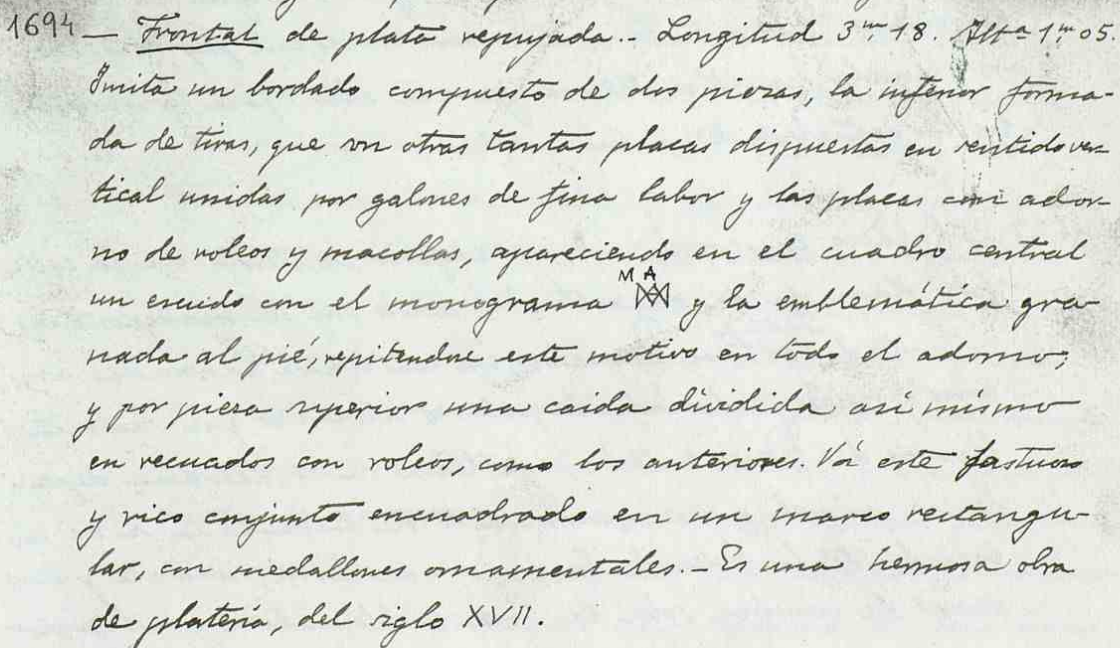 1694 — Frontal de plata repujada.- Longitud 3m,18. Altª 1m,05.
Imita un bordado compuesto de dos piezas, la inferior forma-
da de tiras, que son otras tantas placas dispuestas en sentido ver-
tical unidas por galones de fina labor y las placas con ador-
no de roleos y macollas, apareciendo en el cuadro central
un escudo con el monograma MA y la emblemática gra-
nada al pié, repitendose este motivo en todo el adorno;
y por pieza superior una caida dividida asi mismo
en recuados con roleos, como los anteriores. Vá este fastuoso
y rico conjunto encuadrado en un marco rectangu-
lar, con medallones ornamentales.- Es una hermosa obra
de platería, del siglo XVII.